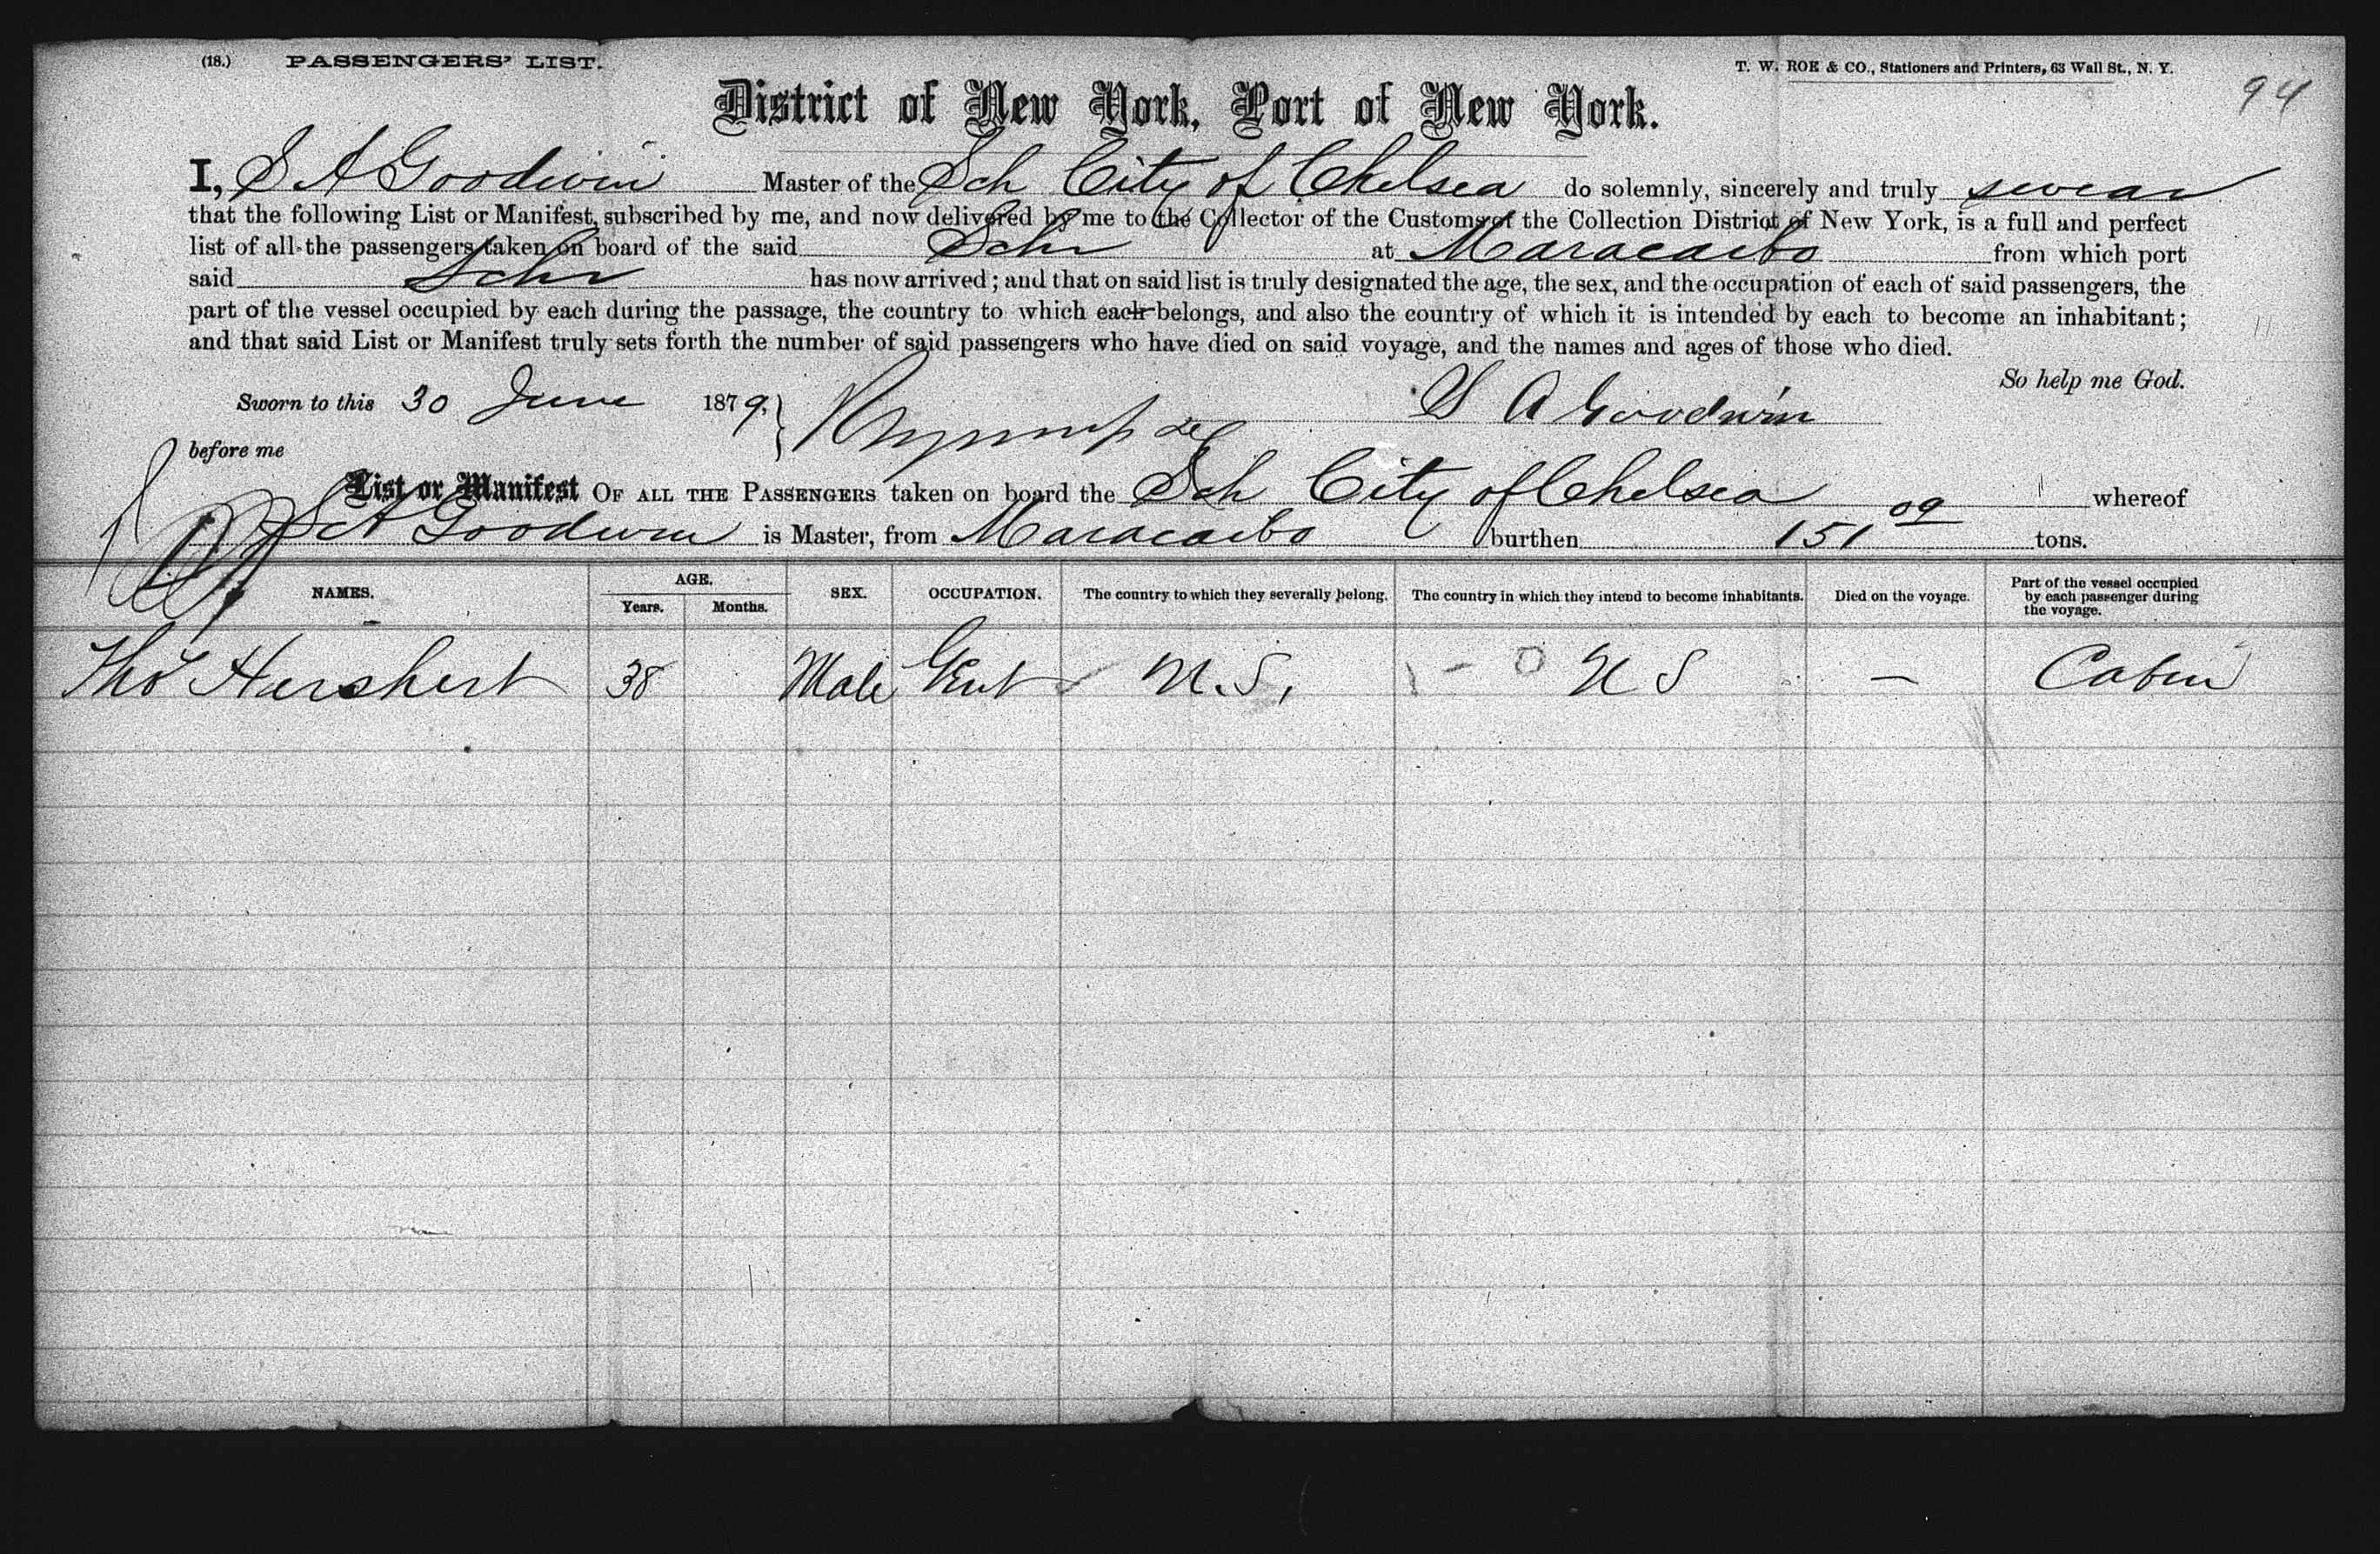 (18.) PASSENGERS' LIST.
T. W. ROE & CO., Stationers and Printers, 63 Wall St., N. Y.
94
District of New York, Port of New York.
I, S A Goodwin Master of the Sch City of Chelsea do solemnly, sincerely and truly swear
that the following List or Manifest, subscribed by me, and now delivered by me to the Collector of the Customs of the Collection District of New York, is a full and perfect
list of all the passengers taken on board of the said Schr at Maracaibo from which port
said Schr has now arrived; and that on said list is truly designated the age, the sex, and the occupation of each of said passengers, the
part of the vessel occupied by each during the passage, the country to which each belongs, and also the country of which it is intended by each to become an inhabitant;
and that said List or Manifest truly sets forth the number of said passengers who have died on said voyage, and the names and ages of those who died.
So help me God.
Sworn to this 30 June 1879, S A Goodwin
before me
List or Manifest OF ALL THE PASSENGERS taken on board the Sch City of Chelsea whereof
S A Goodwin is Master, from Maracaibo burthen 151 09 tons.
NAMES. AGE. SEX. OCCUPATION. The country to which they severally belong. The country in which they intend to become inhabitants. Died on the voyage. Part of the vessel occupied by each passenger during the voyage.
Years. Months.
Thos Hershert 38 Male Gent U.S, U S — Cabin